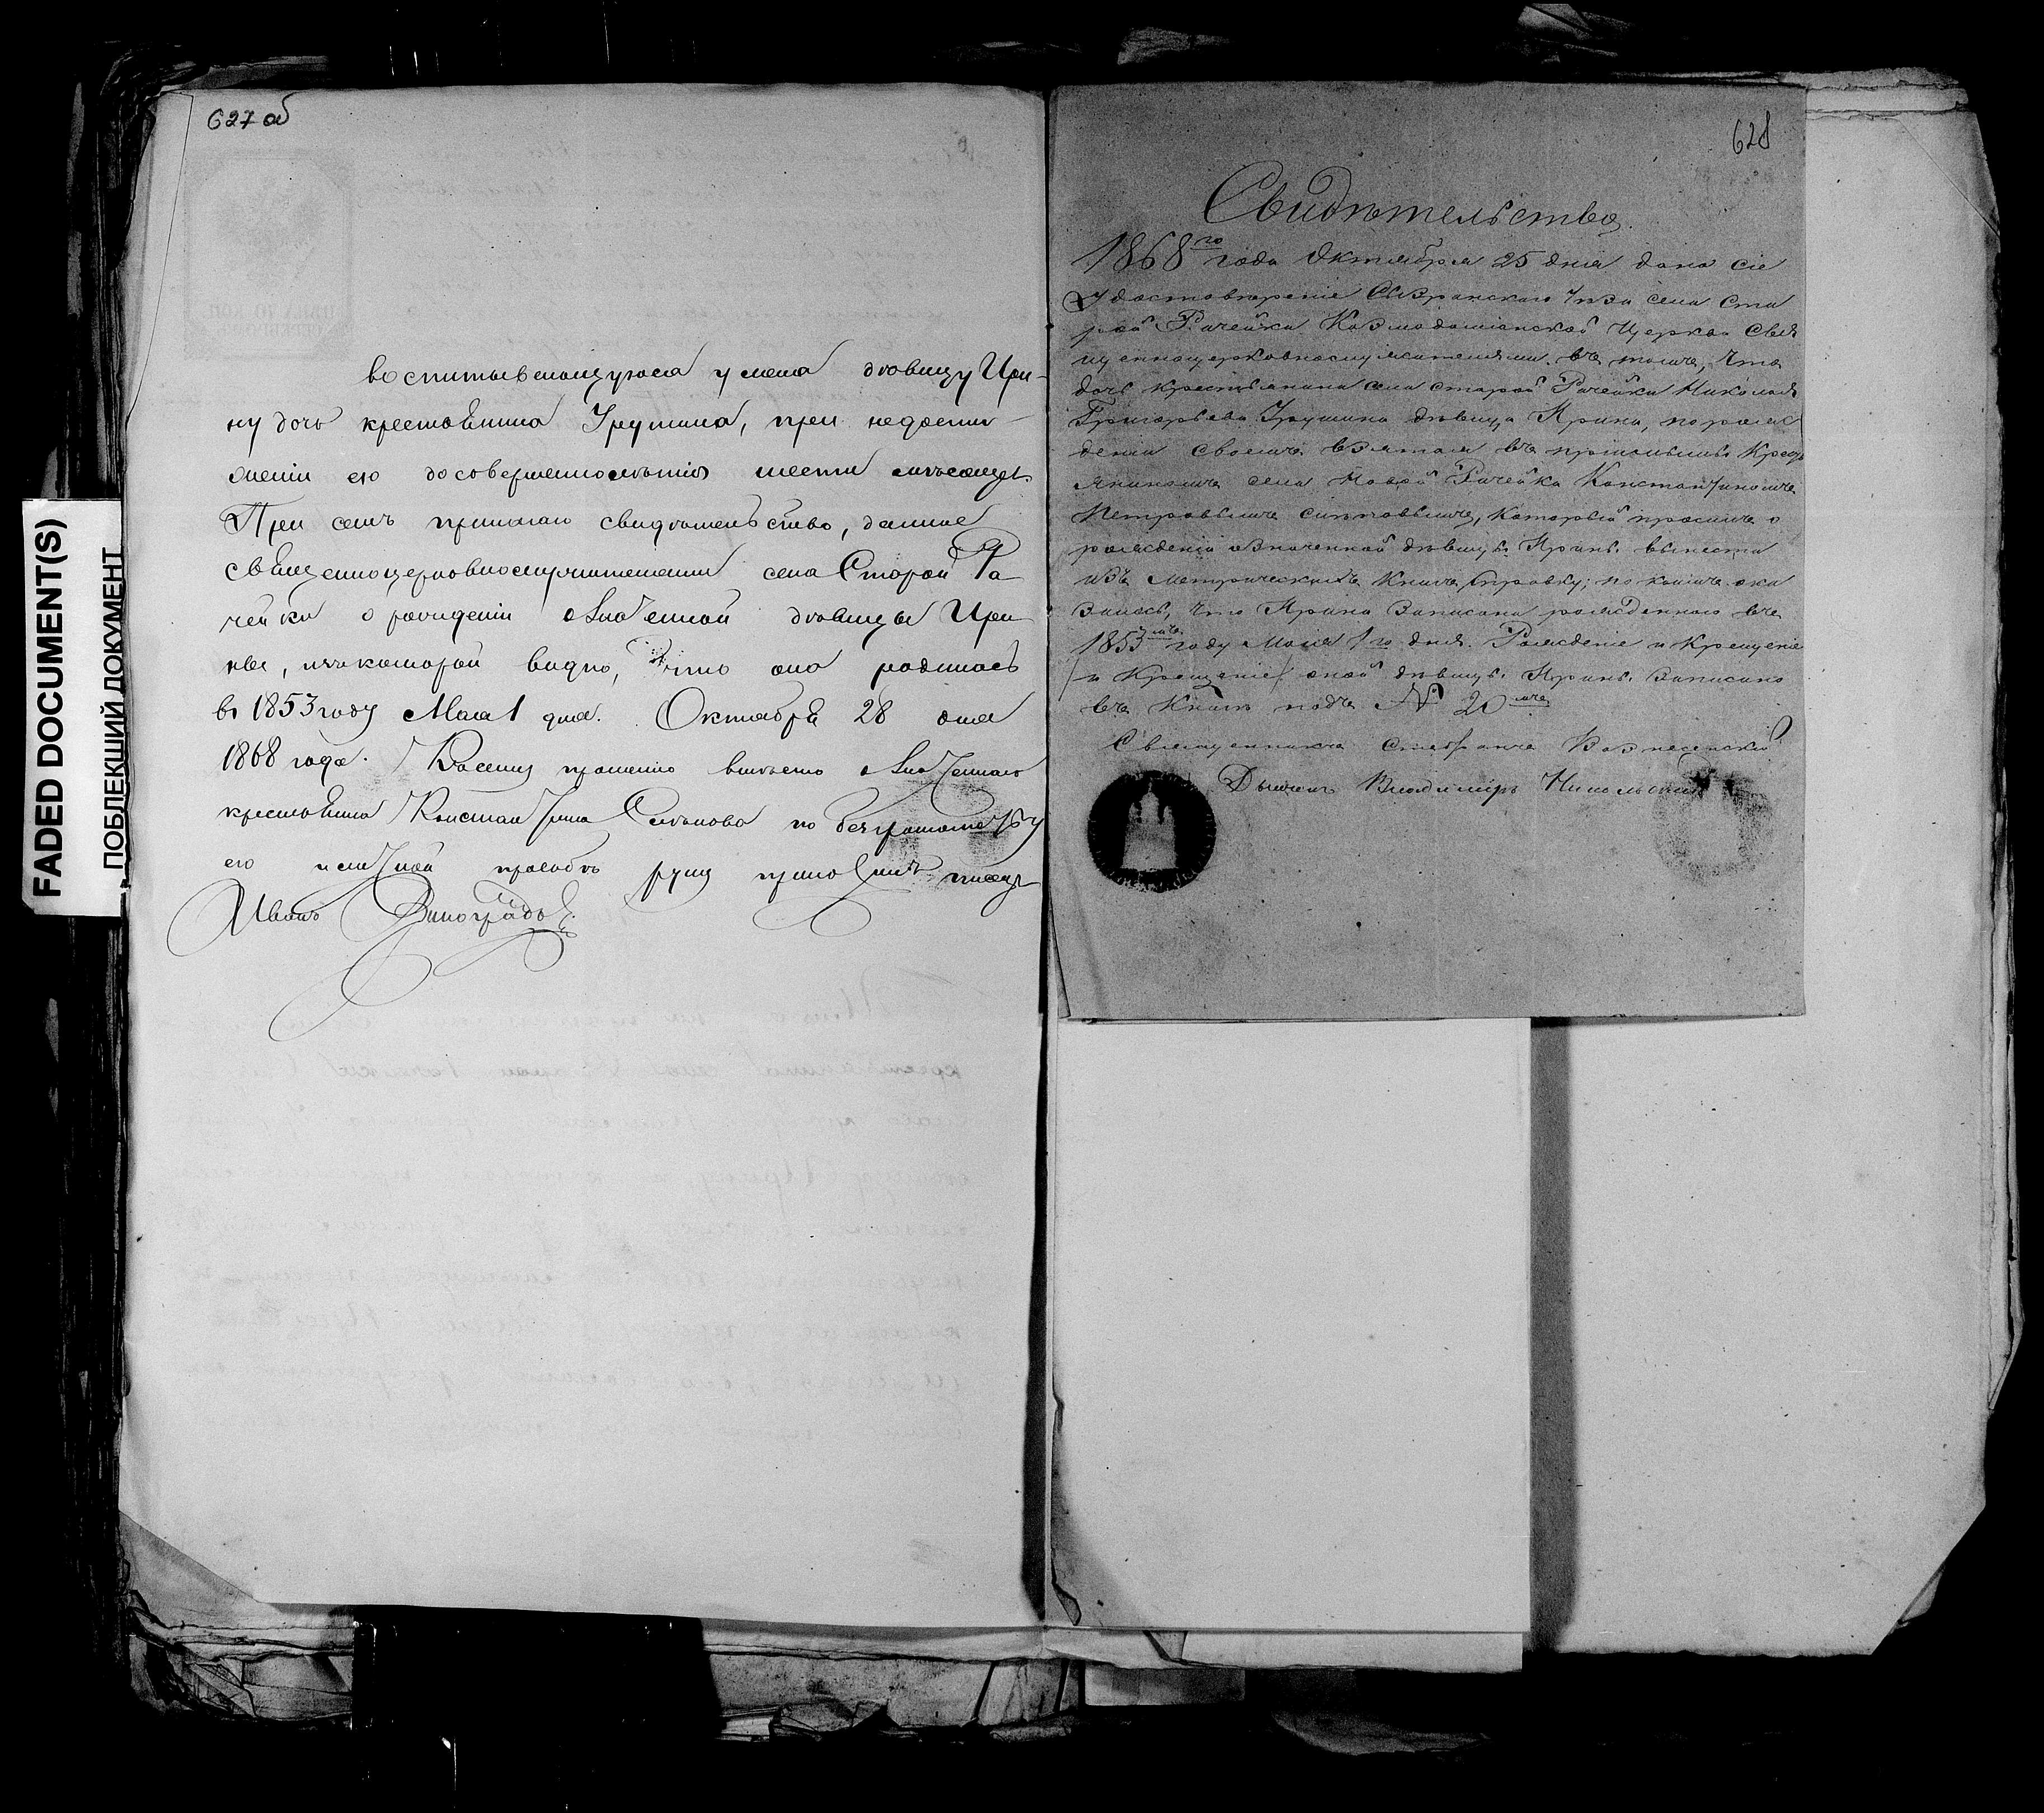 FADED DOCUMENT(S)
ПОБЛЕКШИЙ ДОКУМЕНТ
627 об
воспитывающуюся у меня дѣвицу Ири-
ну дочь крестьянина Грушина, при недости-
женіи ею до совершеннолѣтія шести мѣсяцевъ.
При семъ прилагаю свидѣтельство, данное
священноцерковнослужителями села Старой Ра
чейки о рожденіи означенной дѣвицы Ири
ны, изъ которой видно, что она родилась
въ 1853 году Мая 1 дня. Октября 28 дня
1868 года. К сему прошенію вмѣсто означеннаго
крестьянина Константина Ситнова по безграмотству
его и личной просьбѣ руку приложилъ писецъ
Иванъ Виноградовъ
628
Свидѣтельство
1868го года Октября 25 дня дано сіе
Удостовѣреніе Сызранскаго Уѣзда села Ста
рой Рачейки Козмодаміанской Церкви Свя
щенноцерковнослужителями въ томъ, что
дочь крестьянина села старой Рачейки Николая
Григорьева Грушина дѣвица Ирина, по рож
деніи своемъ взятая въ пріемыши Кресть
яниномъ села Новой Рачейки Константиномъ
Петровымъ Ситновымъ, который просилъ о
рожденіи означенной дѣвицы Ирины вынести
изъ Метрическихъ Книгъ справку; по коимъ ока
залось, что Ирина Записана рожденною въ
1853мъ году Маія 1го дня. Рожденіе и Крещеніе
/и Крещеніе/ оной дѣвицы Ирины Записано
въ Книгѣ подъ № 20мъ
Священникъ Стефанъ Вознесенскій
Дьячекъ Владиміръ Никольскій